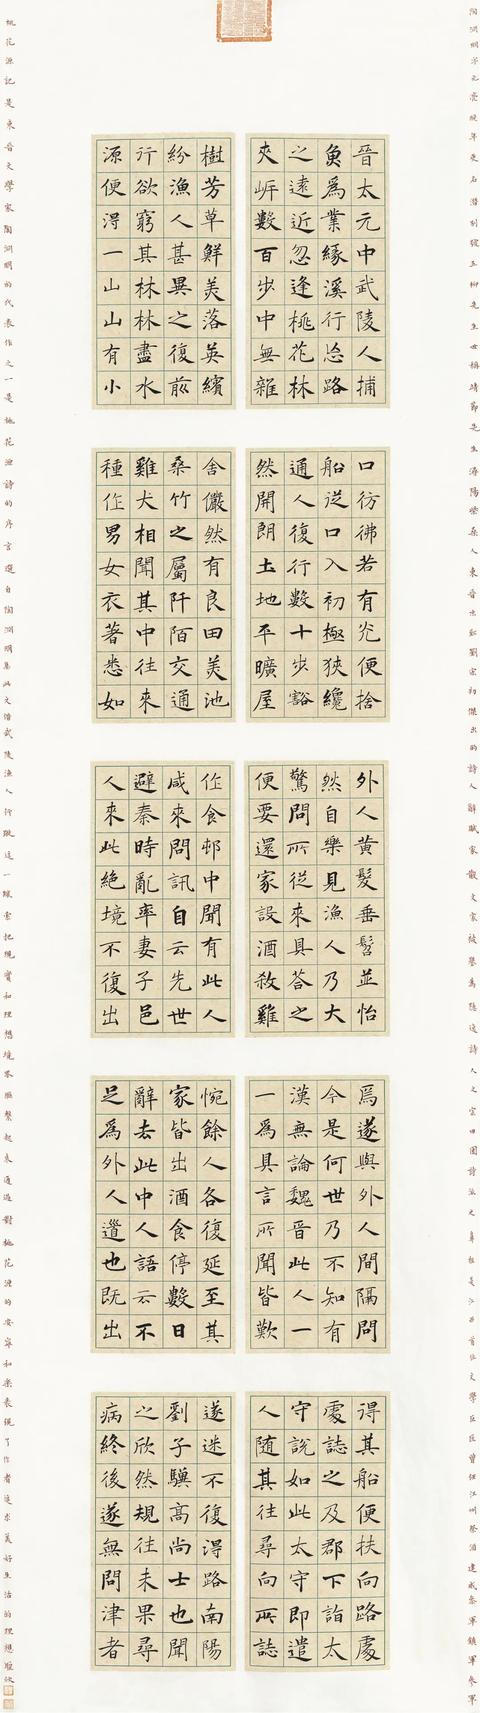 陶淵明字元亮晚年更名潛別號五柳先生世稱靖節先生潯陽柴桑人東晉末到劉宋初傑出的詩人辭賦家散文家被譽爲隱逸詩人之宗田園詩派之鼻祖是江西首位文學巨匠曾任江州祭酒建威參軍鎮軍參軍
晉太元中武陵人捕
魚爲業緣溪行忘路
之遠近忽逢桃花林
夾岸數百步中無雜
樹芳草鮮美落英繽
紛漁人甚異之復前
行欲窮其林林盡水
源便得一山山有小
口彷彿若有光便捨
船從口入初極狹纔
通人復行數十步豁
然開朗土地平曠屋
舍儼然有良田美池
桑竹之屬阡陌交通
雞犬相聞其中往來
種作男女衣著悉如
外人黃髮垂髫並怡
然自樂見漁人乃大
驚問所從來具答之
便要還家設酒殺雞
作食邨中聞有此人
咸來問訊自云先世
避秦時亂率妻子邑
人來此絕境不復出
焉遂與外人間隔問
今是何世乃不知有
漢無論魏晉此人一
一爲具言所聞皆歎
惋餘人各復延至其
家皆出酒食停數日
辭去此中人語云不
足爲外人道也既出
得其船便扶向路處
處誌之及郡下詣太
守說如此太守即遣
人隨其往尋向所誌
遂迷不復得路南陽
劉子驥高尚士也聞
之欣然規往未果尋
病終後遂無問津者
桃花源記是東晉文學家陶淵明的代表作之一是桃花源詩的序言選自陶淵明集此文借武陵漁人行蹤這一線索把現實和理想境界聯繫起來通過對桃花源的安寧和樂表現了作者追求美好生活的理想